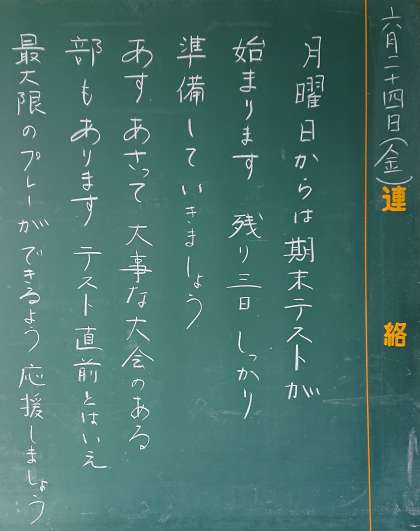 六月二十四日(金)
連絡
月曜日からは期末テストが
始まります 残り三日 しっかり
準備していきましょう
あす あさって 大事な大会のある
部もあります テスト直前とはいえ
最大限のプレーができるよう 応援しましょう